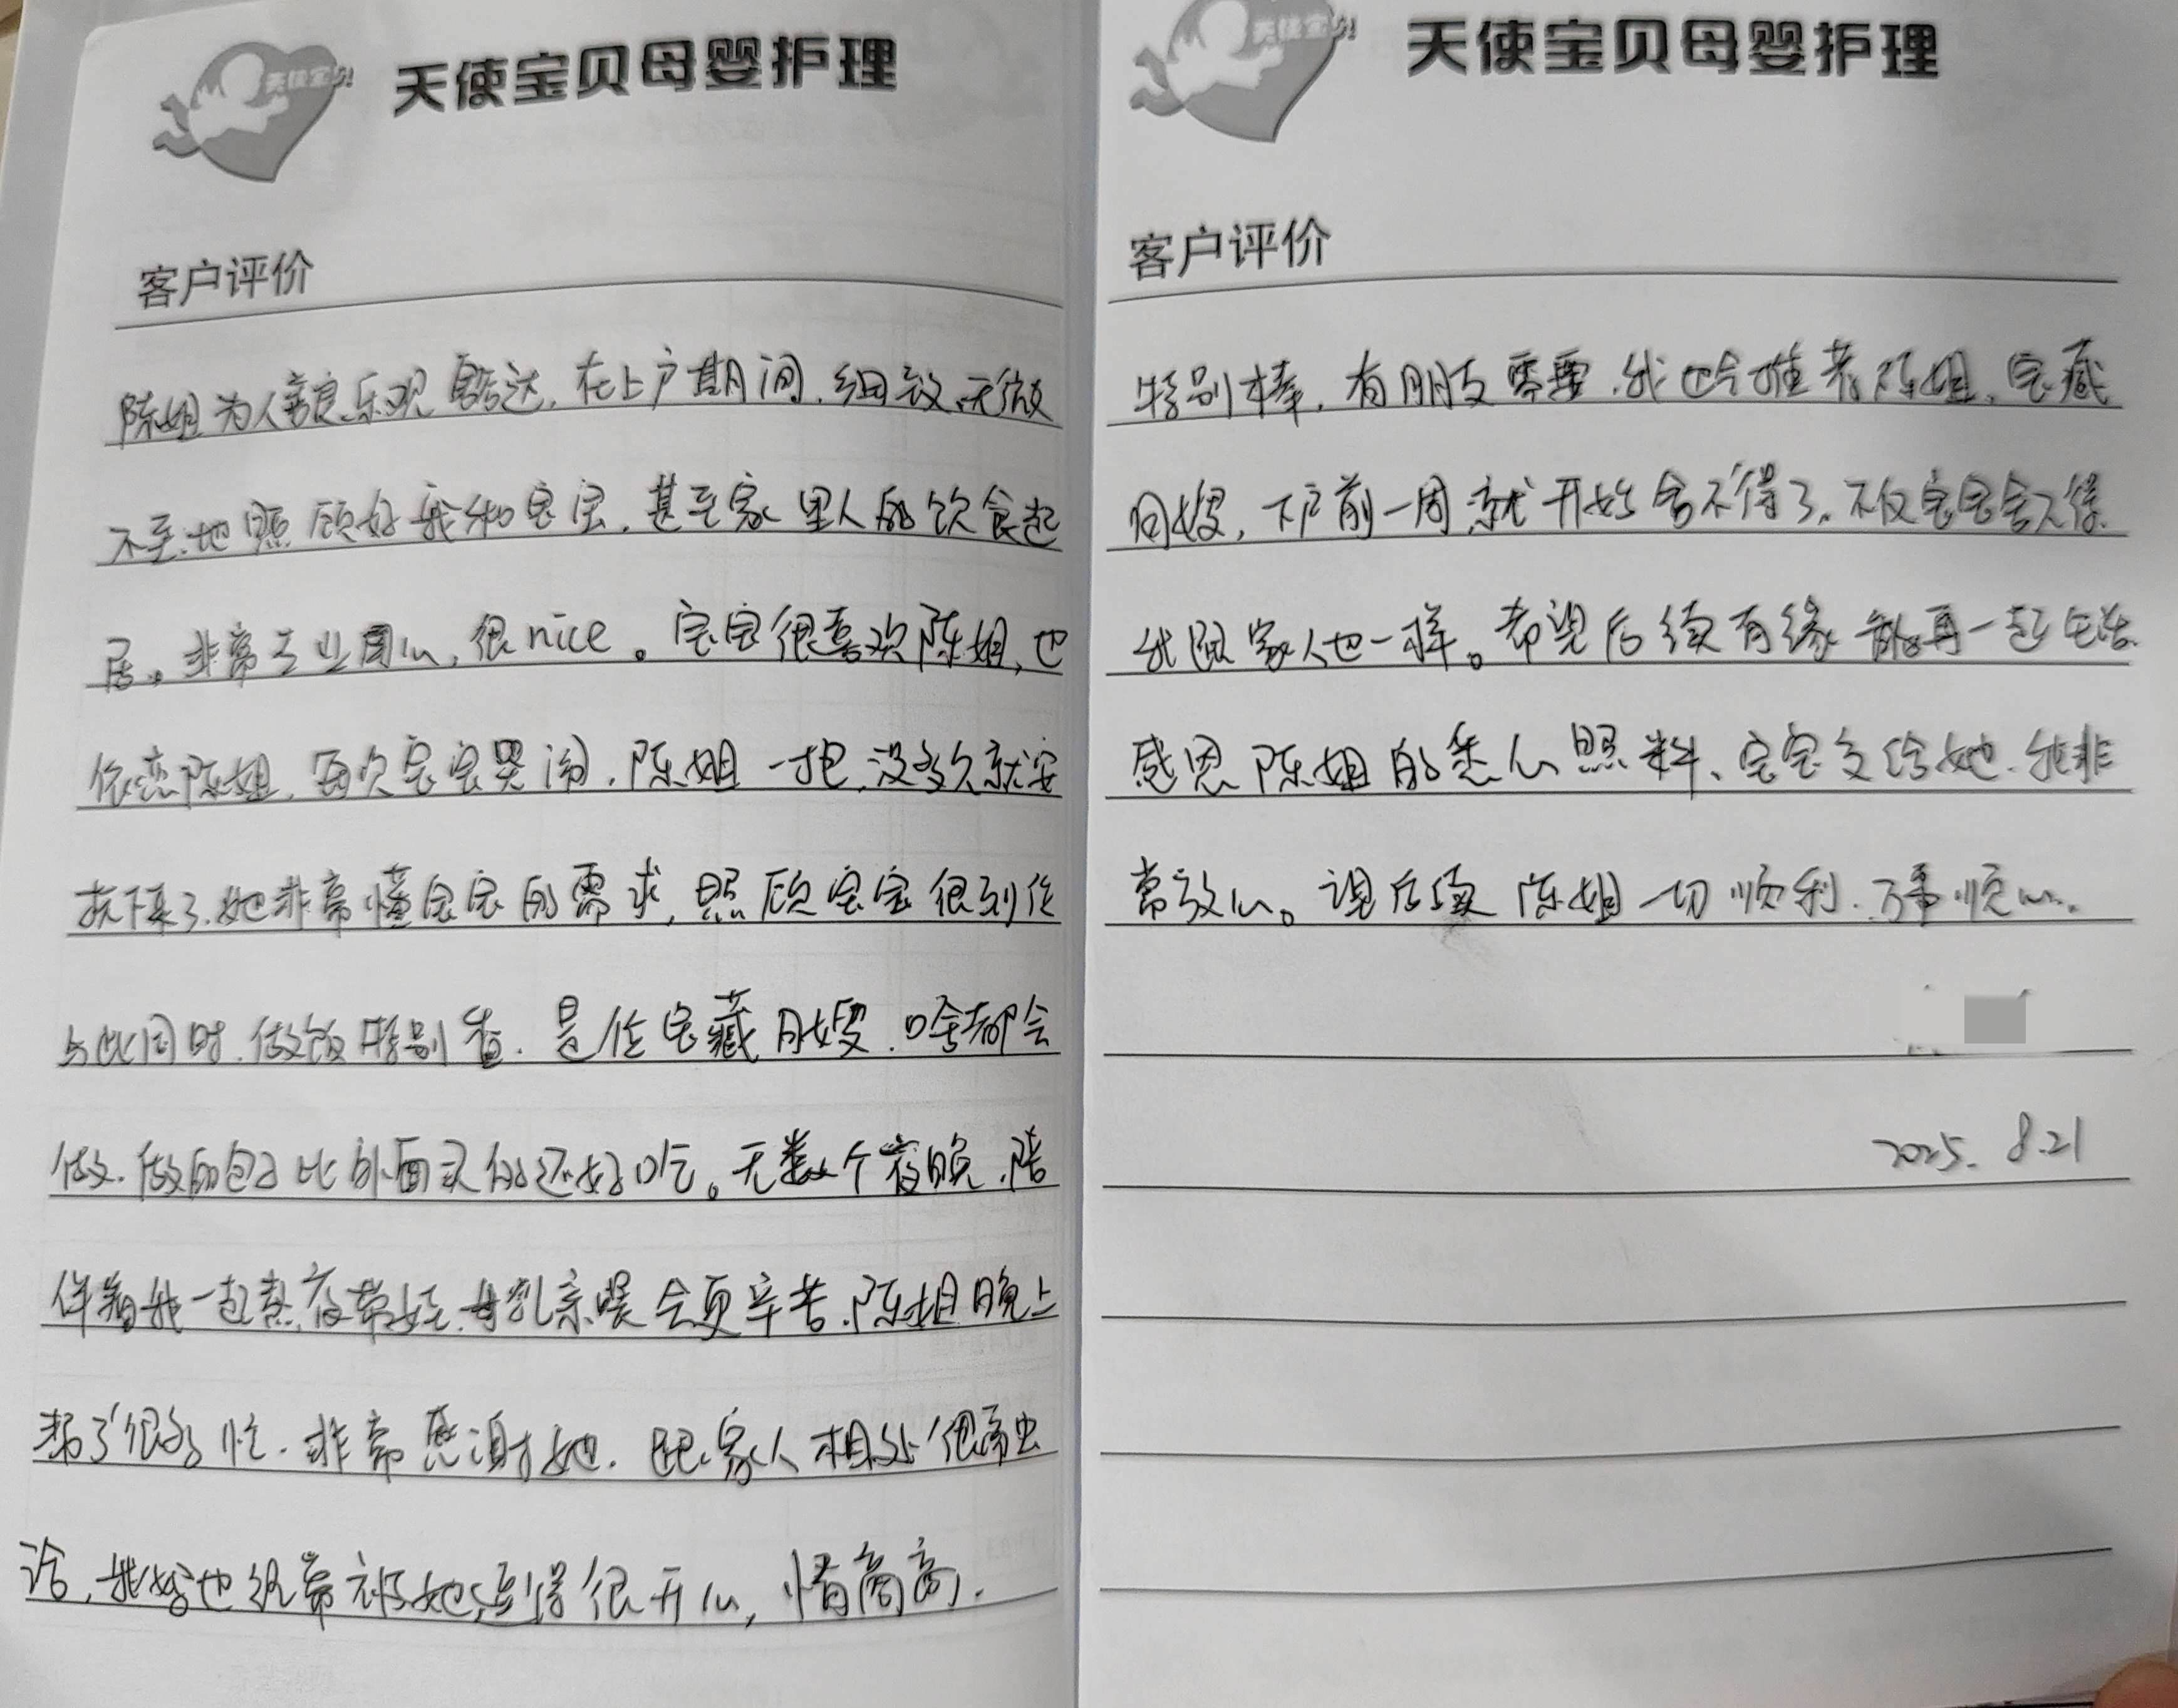 天使宝贝母婴护理
客户评价
陈姐为人善良乐观豁达,在上户期间,细致无微
不至地照顾好我和宝宝,甚至家里人的饮食起
居。非常专业用心,很nice。宝宝很喜欢陈姐,也
依恋陈姐,每次宝宝哭闹,陈姐一抱,没多久就安
抚下来了,她非常懂宝宝的需求,照顾宝宝很到位
与此同时,做饭特别香,是位宝藏月嫂,啥都会
做,做的包子比外面买的还好吃。无数个夜晚,陪
伴着我一起熬夜带娃,母乳亲喂会更辛苦,陈姐晚上
帮了很多忙,非常感谢她,跟家人相处很融
洽,我妈也经常被她逗得很开心,情商高,
天使宝贝母婴护理
客户评价
特别棒,有朋友需要,我也会推荐陈姐,宝藏
月嫂,下户前一周就开始舍不得了,不仅宝宝舍不得,
我跟家人也一样。希望后续有缘能再一起生活,
感恩陈姐的悉心照料、宝宝交给她,我非
常放心。祝后续陈姐一切顺利、万事顺心。
2025.8.21